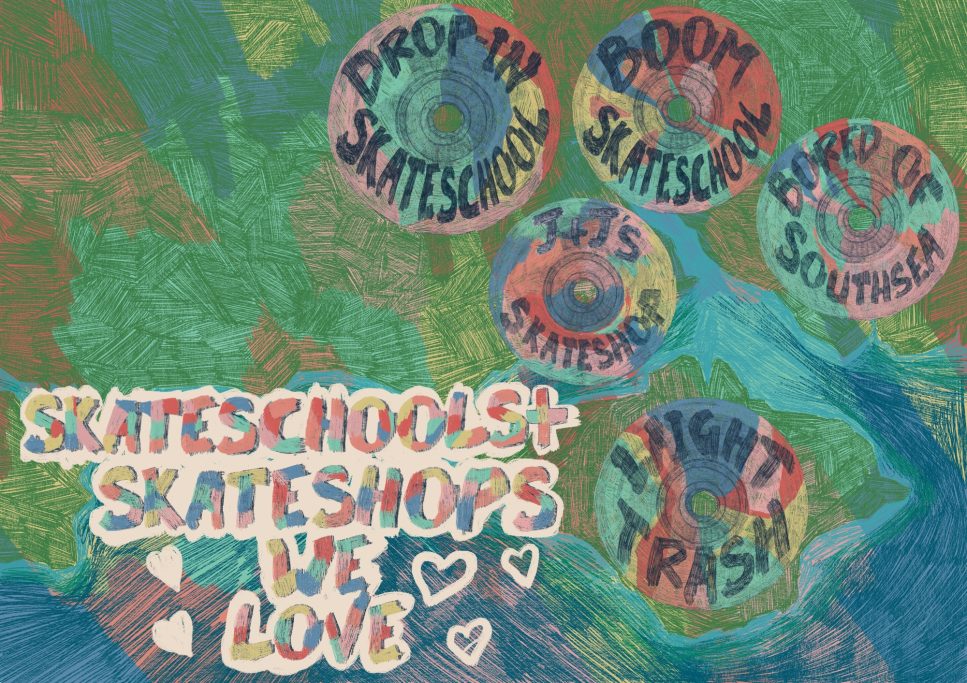 DROP-IN
SKATESCHOOL
BOOM
SKATESCHOOL
BORED OF
SOUTHSEA
J+J'S
SKATESHOP
NIGHT
TRASH
SKATESCHOOLS+
SKATESHOPS
WE
LOVE